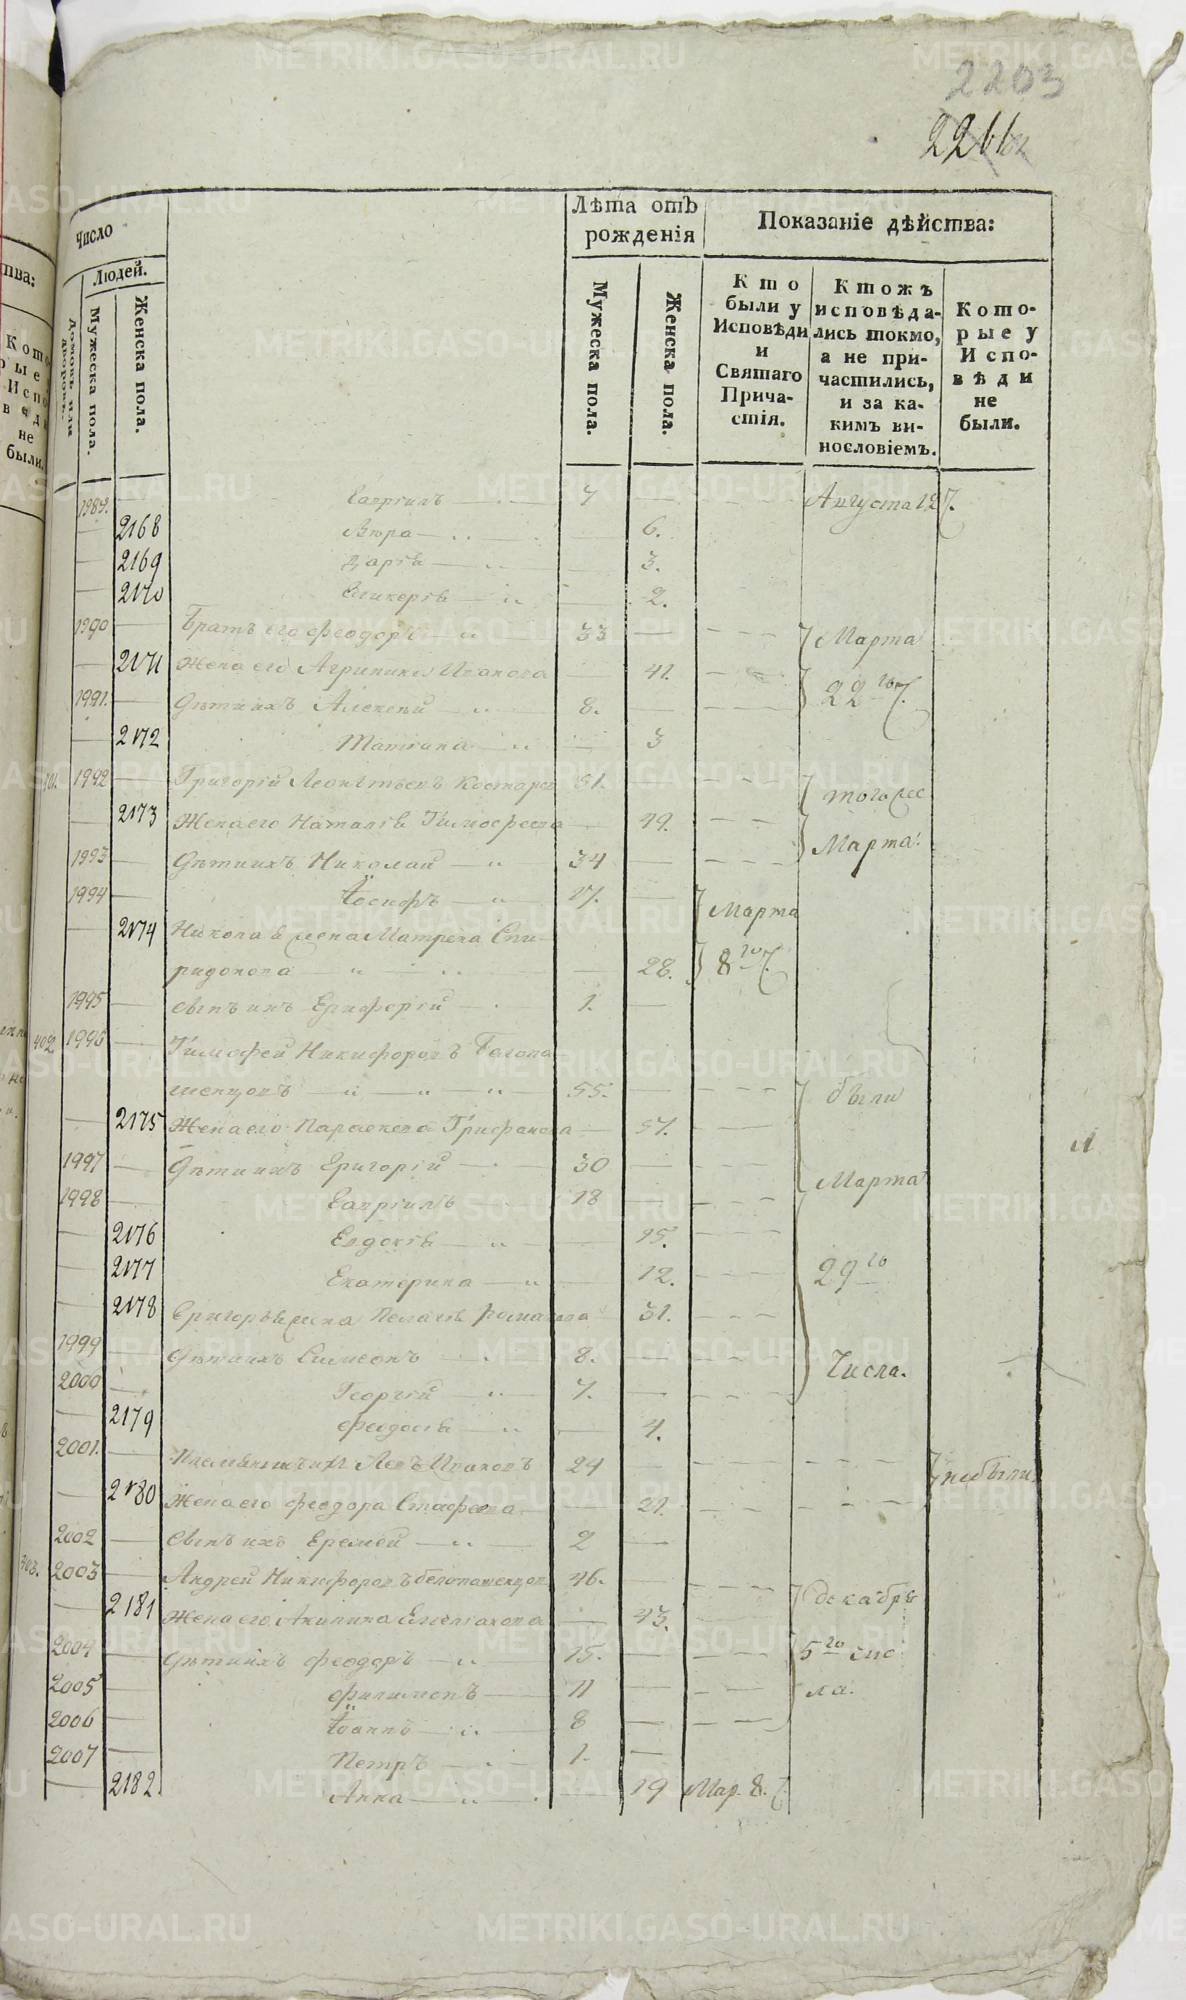 2203
2266
Число
Лѣта отъ рожденія
Показаніе дѣйства:
Людей.
домовъ или дворовъ.
Мужеска пола.
Женска пола.
Мужеска пола.
Женска пола.
Кто были у Исповѣди и Святаго Причастія.
Ктожъ исповѣдались токмо, а не причастились, и за какимъ винословіемъ.
Которые у Исповѣди не были.
1989. Гавріилъ 7 Августа 12 7.
2168 Вѣра 6.
2169 Дарія 3.
2170 Гликерія 2.
1990 Братъ его Феодоръ 33 Марта
2171 Жена его Агрипина Иванова 41. 22 го 7.
1991. Дѣти ихъ Алексѣй 8.
2172 Татіана 3
401. 1992 Григорій Леонтьевъ 51. того же
2173 Жена его Наталія Тимофеева 49. Марта
1993 Дѣти ихъ Николай 34
1994 Іосифъ 17. Марта
2174 Никола жена Матрена Спи-
ридонова 28. 8 го 7.
1995 Сынъ ихъ Елиферій 1.
402 1996 Тимофей Никифоровъ Белопа-
шенцовъ 55. были
2175 Жена его Параскева Трифанова 57.
1997 Дѣти ихъ Григорій 30 Марта
1998 Гавріилъ 18
2176 Евдокія 15.
2177 Екатерина 12. 29 го
2178 Григорья жена Пелагія Романова 31.
1999 Дѣти ихъ Симеонъ 8. Числа.
2000 Георгій 7.
2179 Феодосія 4.
2001. Племянникъ их Левъ Ивановъ 24 небыли
2180 Жена его Феодора Стафеева 21.
2002 Сынъ ихъ Еремей 2
403. 2003 Андрей Никифоровъ Белопашенцов 46. декабря
2181 Жена его Акилина Емельянова 43.
2004 Дѣти ихъ Феодоръ 15. 5 го чис
2005 Филимонъ 11 ла.
2006 Іоаннъ 8
2007 Петръ 1.
2182. Анна 19 Мар. 8. 7.